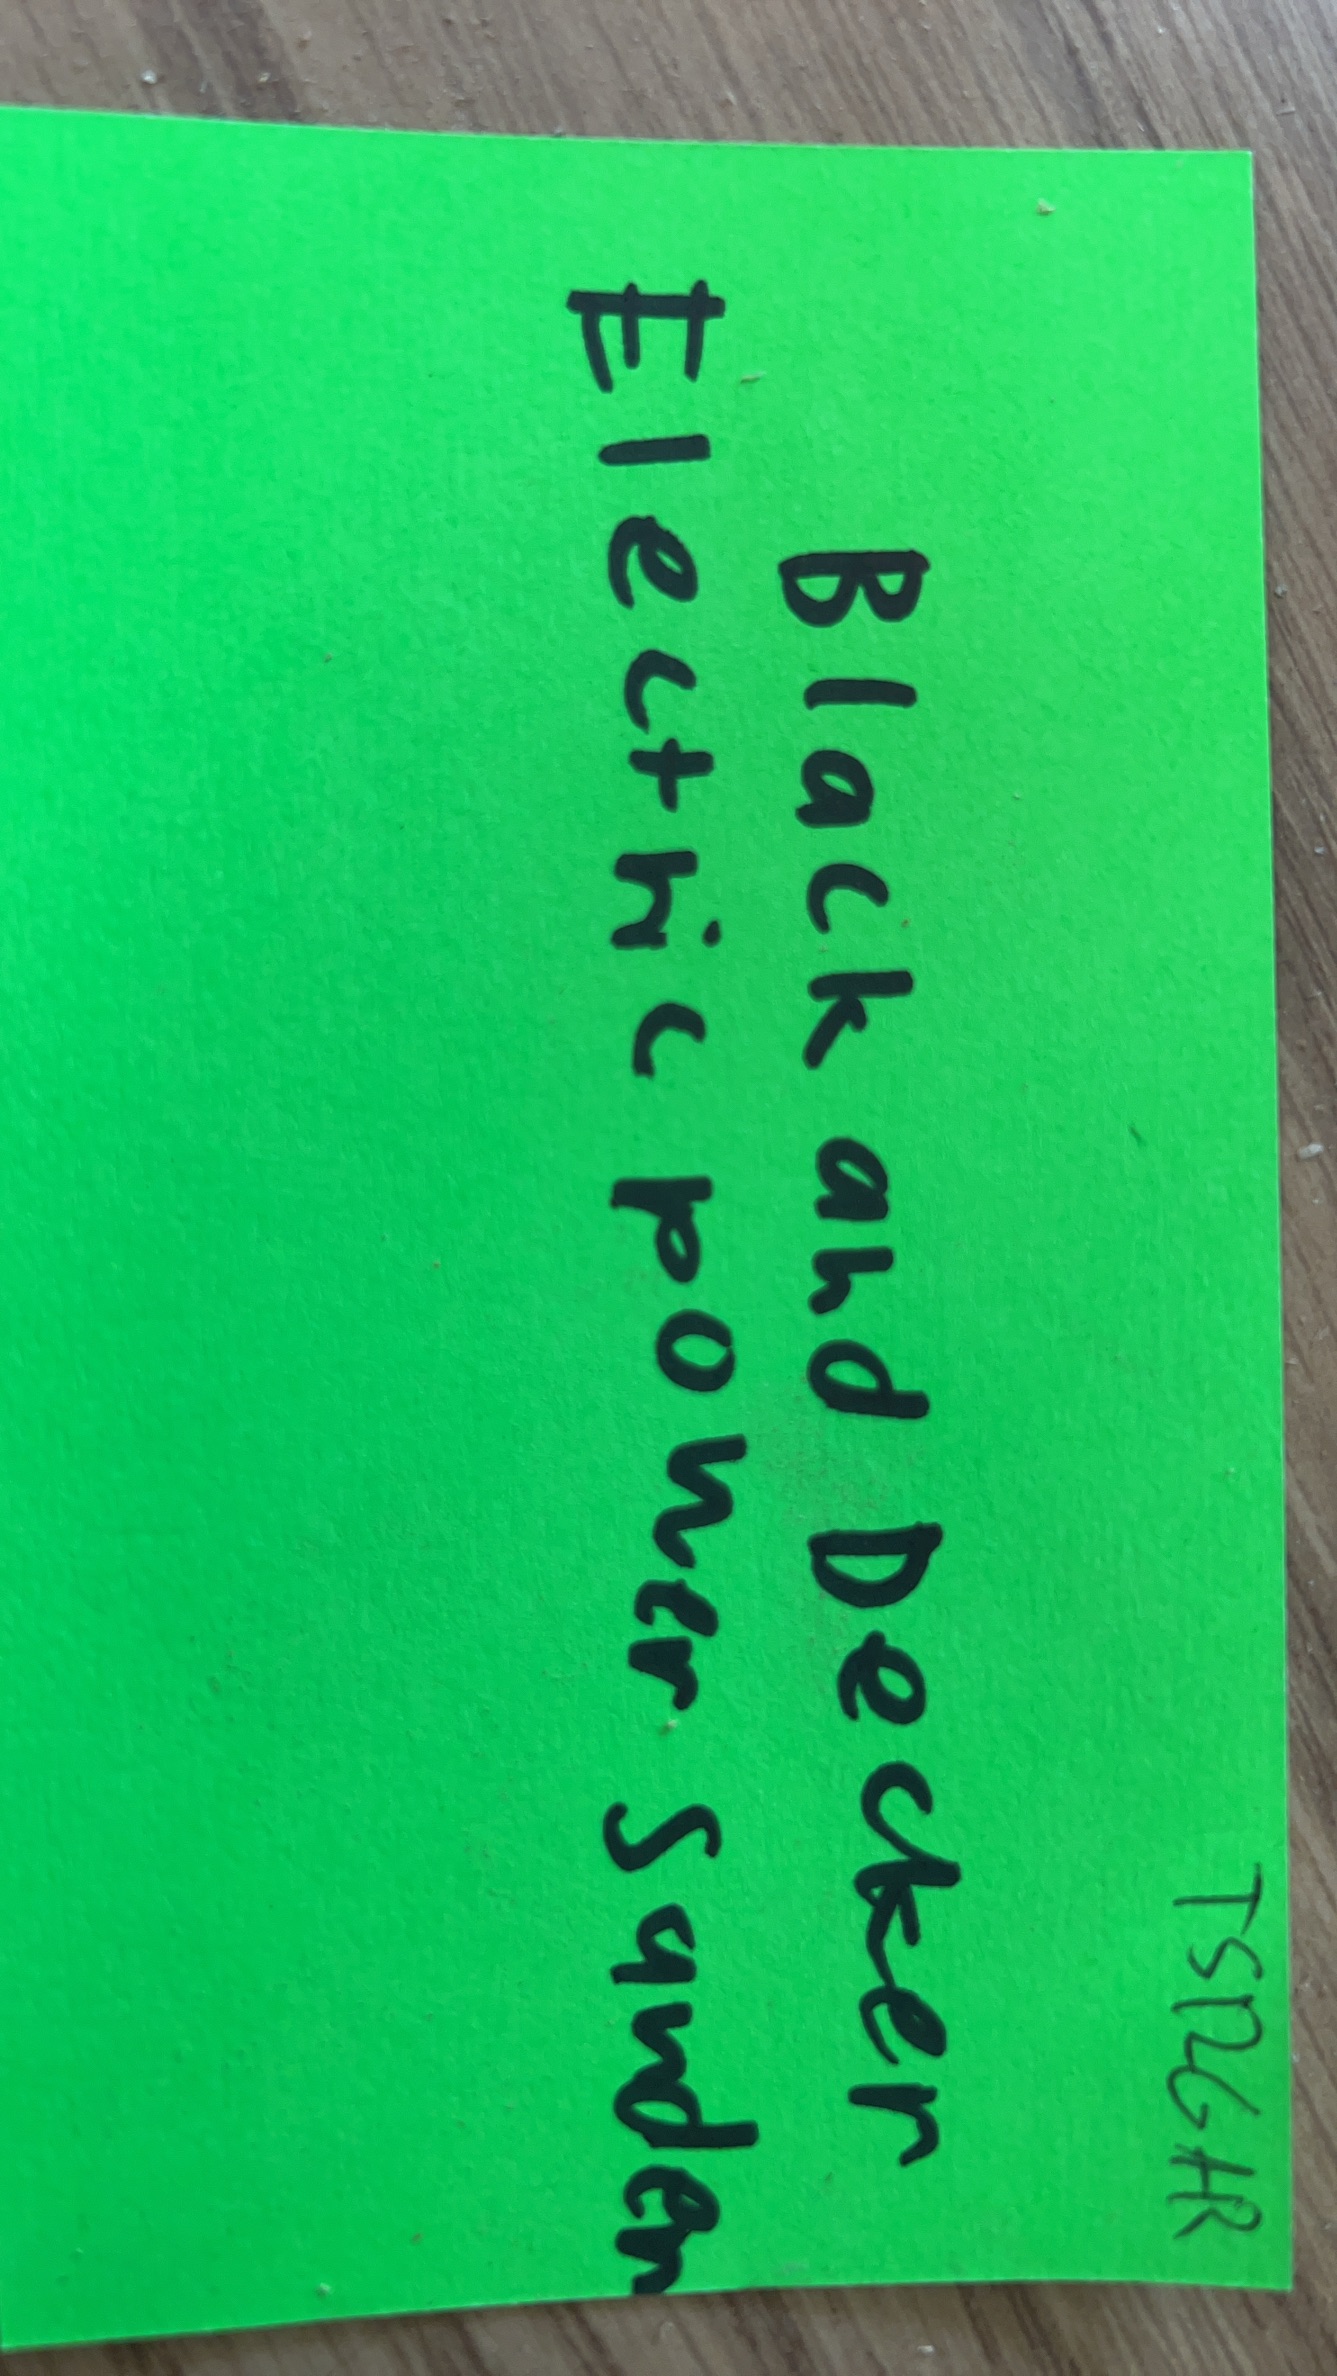 Black and Decker
Electric power Sander